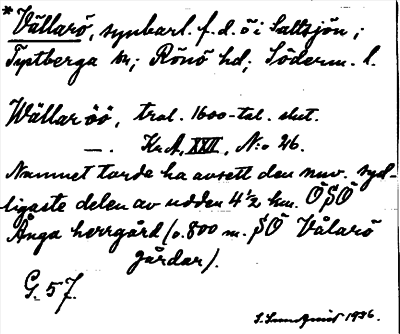 * Vållarö, synbarl. f. d. ö i Saltsjön;
Tystberga sn; Rönö hd; Söderm. l.
Wållar öö, trol. 1600-tal. slut.
— . Kr.A. XXII, N:o 26.
Namnet torde ha avsett den nuv. syd-
ligaste delen av udden 4 1/2 km. ÖSÖ
Ånga herrgård (o. 800 m. SÖ Vålarö
gårdar).
G. 57.